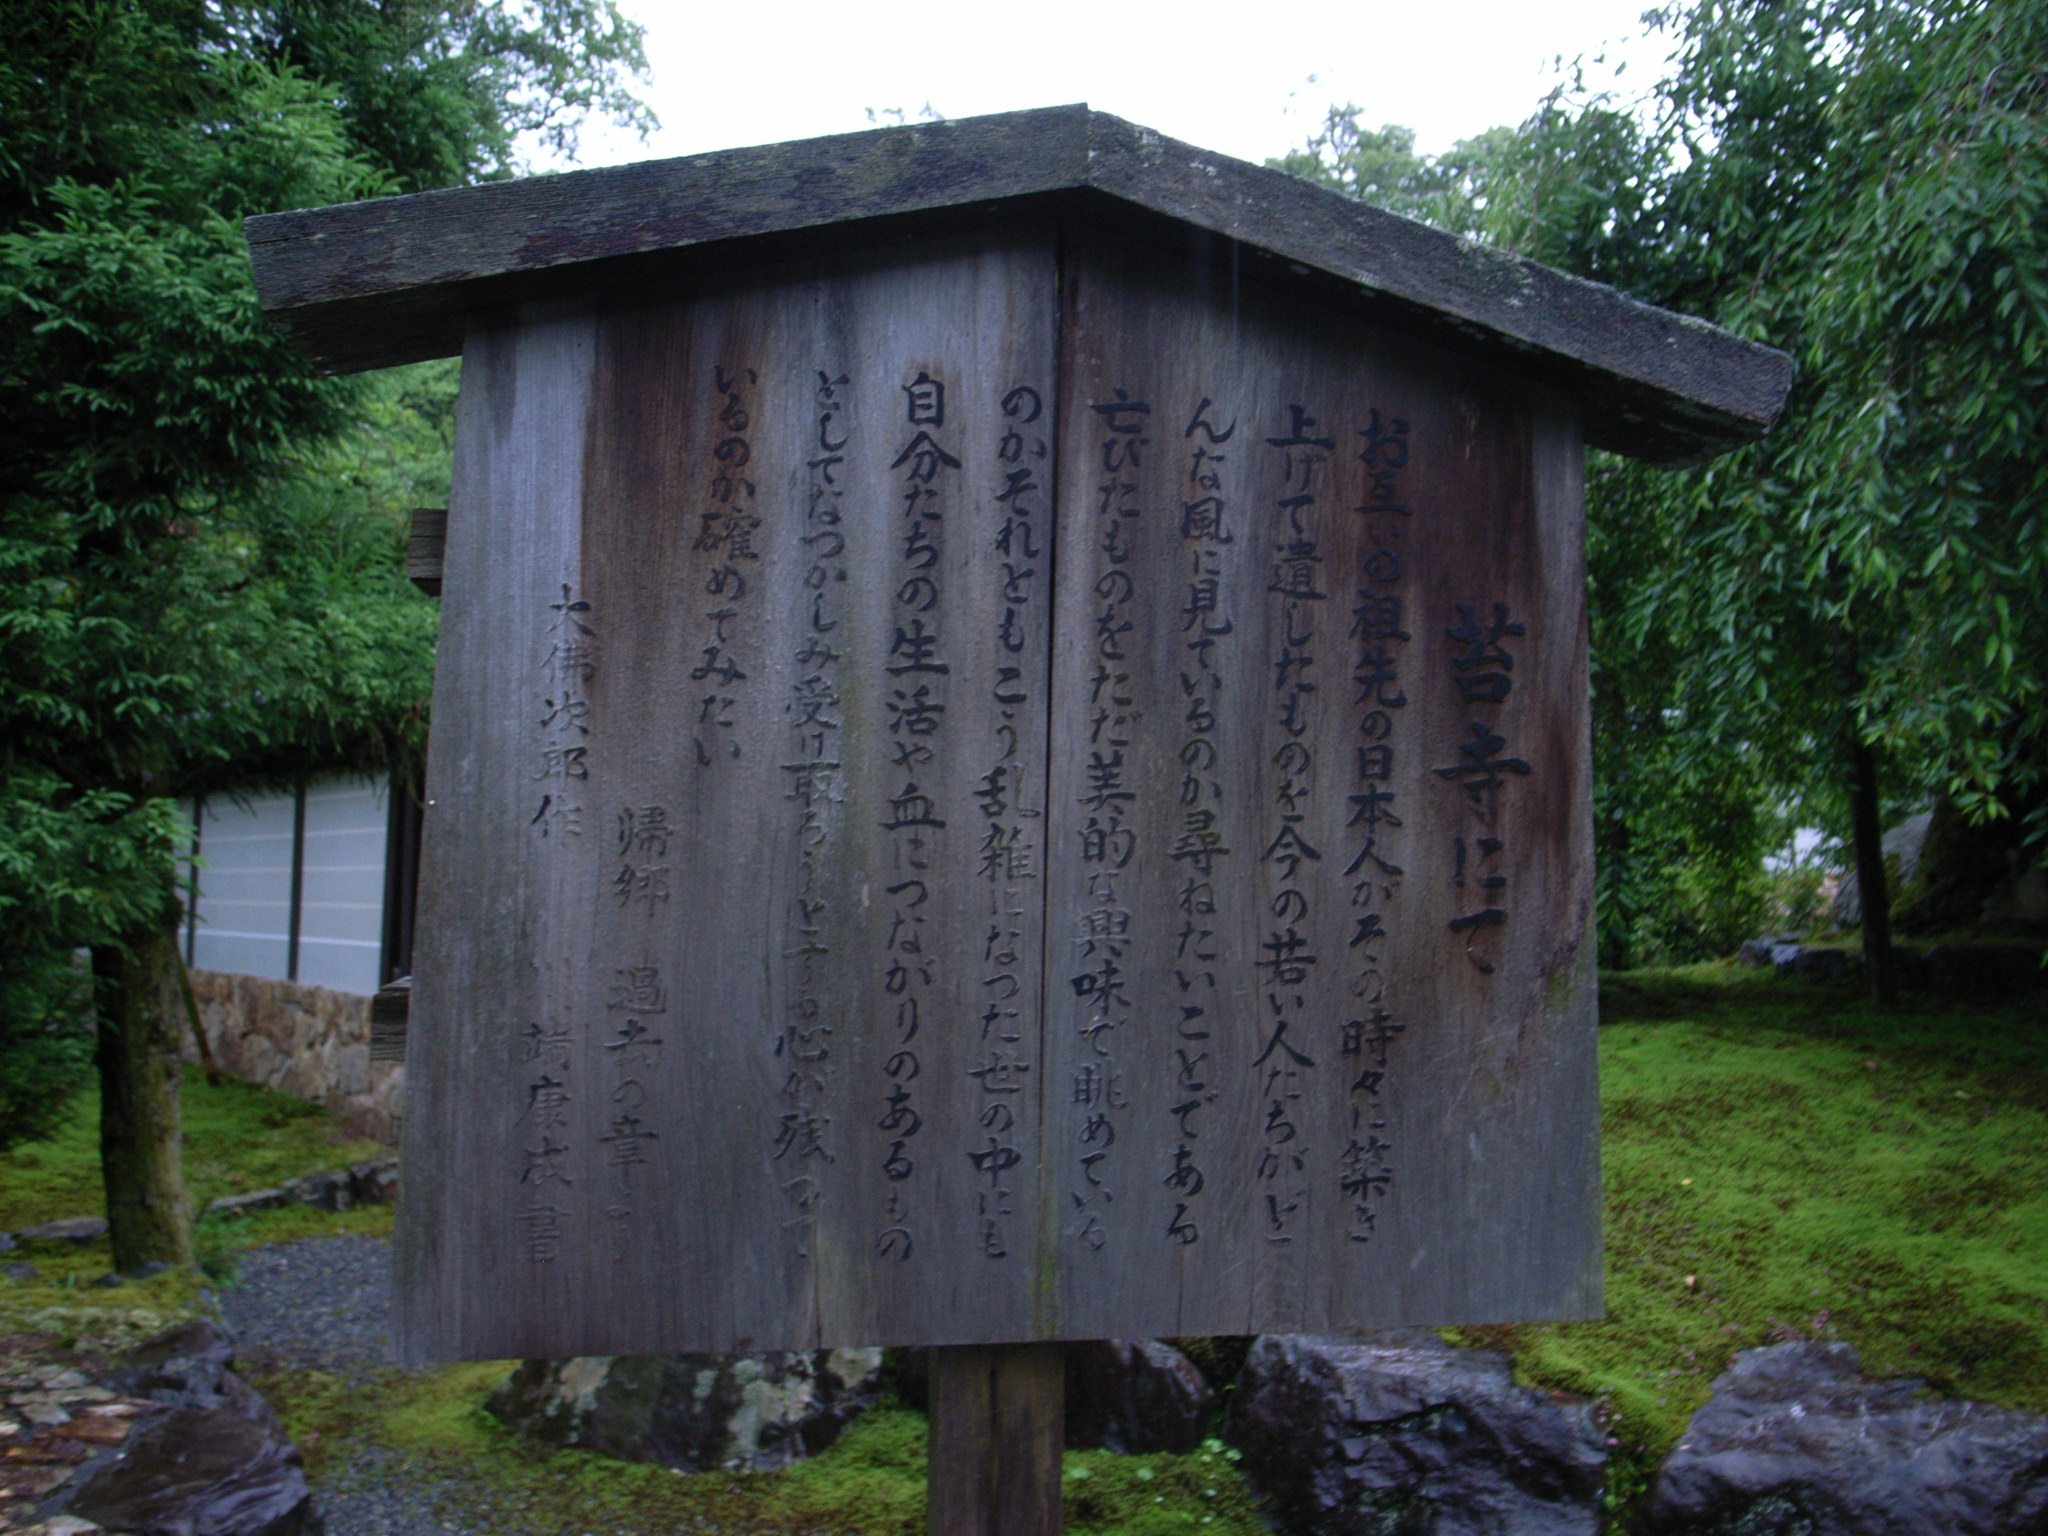 苔寺にて
お互いの祖先の日本人がその時々に築き
上げて遺したものを今の若い人たちがど
んな風に見ているのか尋ねたいことである
亡びたものをただ美的な興味で眺めている
のかそれともこう乱雑になつた世の中にも
自分たちの生活や血につながりのあるもの
としてなつかしみ受け取ろうとする心が残つて
いるのか確めてみたい
帰郷 過去の章より
大佛次郎作
康成書